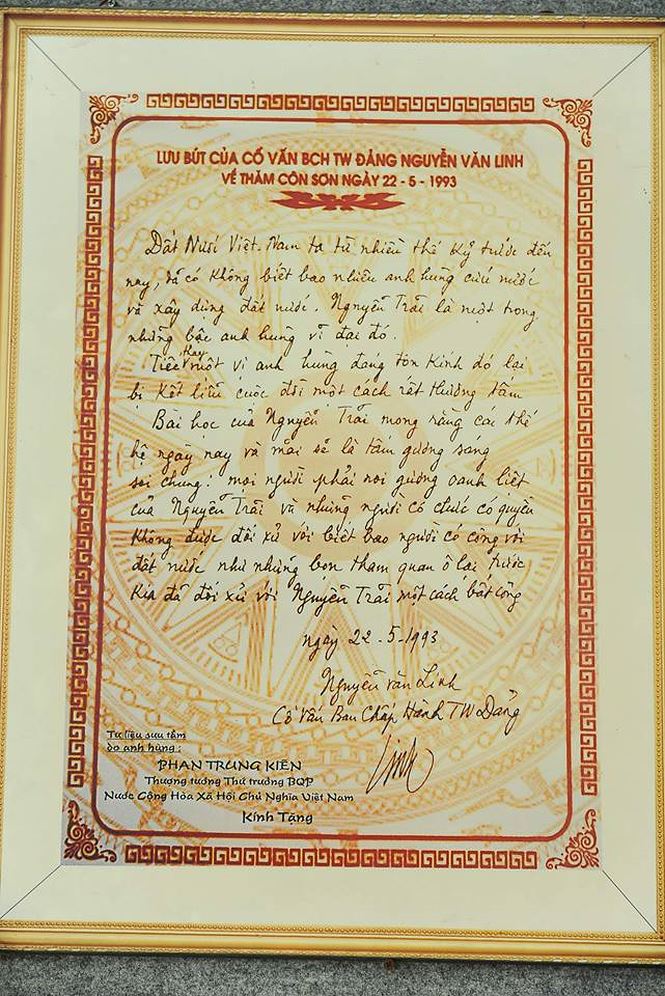 LƯU BÚT CỦA CỐ VẤN BCH TW ĐẢNG NGUYỄN VĂN LINH
VỀ THĂM CÔN SƠN NGÀY 22 - 5 - 1993
Đất Nước Việt Nam ta từ nhiều thế kỷ trước đến
nay, đã có không biết bao nhiêu anh hùng cứu nước
và xây dựng đất nước. Nguyễn Trãi là một trong
những bậc anh hùng vĩ đại đó.
Tiếc thay một vị anh hùng đáng tôn kính đó lại
bị kết liễu cuộc đời một cách rất thương tâm
Bài học của Nguyễn Trãi mong rằng các thế
hệ ngày nay và mãi sẽ là tấm gương sáng
soi chung: mọi người phải noi gương oanh liệt
của Nguyễn Trãi và những người có chức có quyền
không được đối xử với biết bao người có công với
đất nước như những bọn tham quan ô lại trước
kia đã đối xử với Nguyễn Trãi một cách bất công
ngày 22-5-1993
Nguyễn Văn Linh
Cố vấn Ban Chấp Hành TW Đảng
Linh
Tư liệu sưu tầm
do anh hùng:
PHAN TRUNG KIÊN
Thượng tướng Thứ trưởng BQP
Nước Cộng Hòa Xã Hội Chủ Nghĩa Việt Nam
Kính Tặng